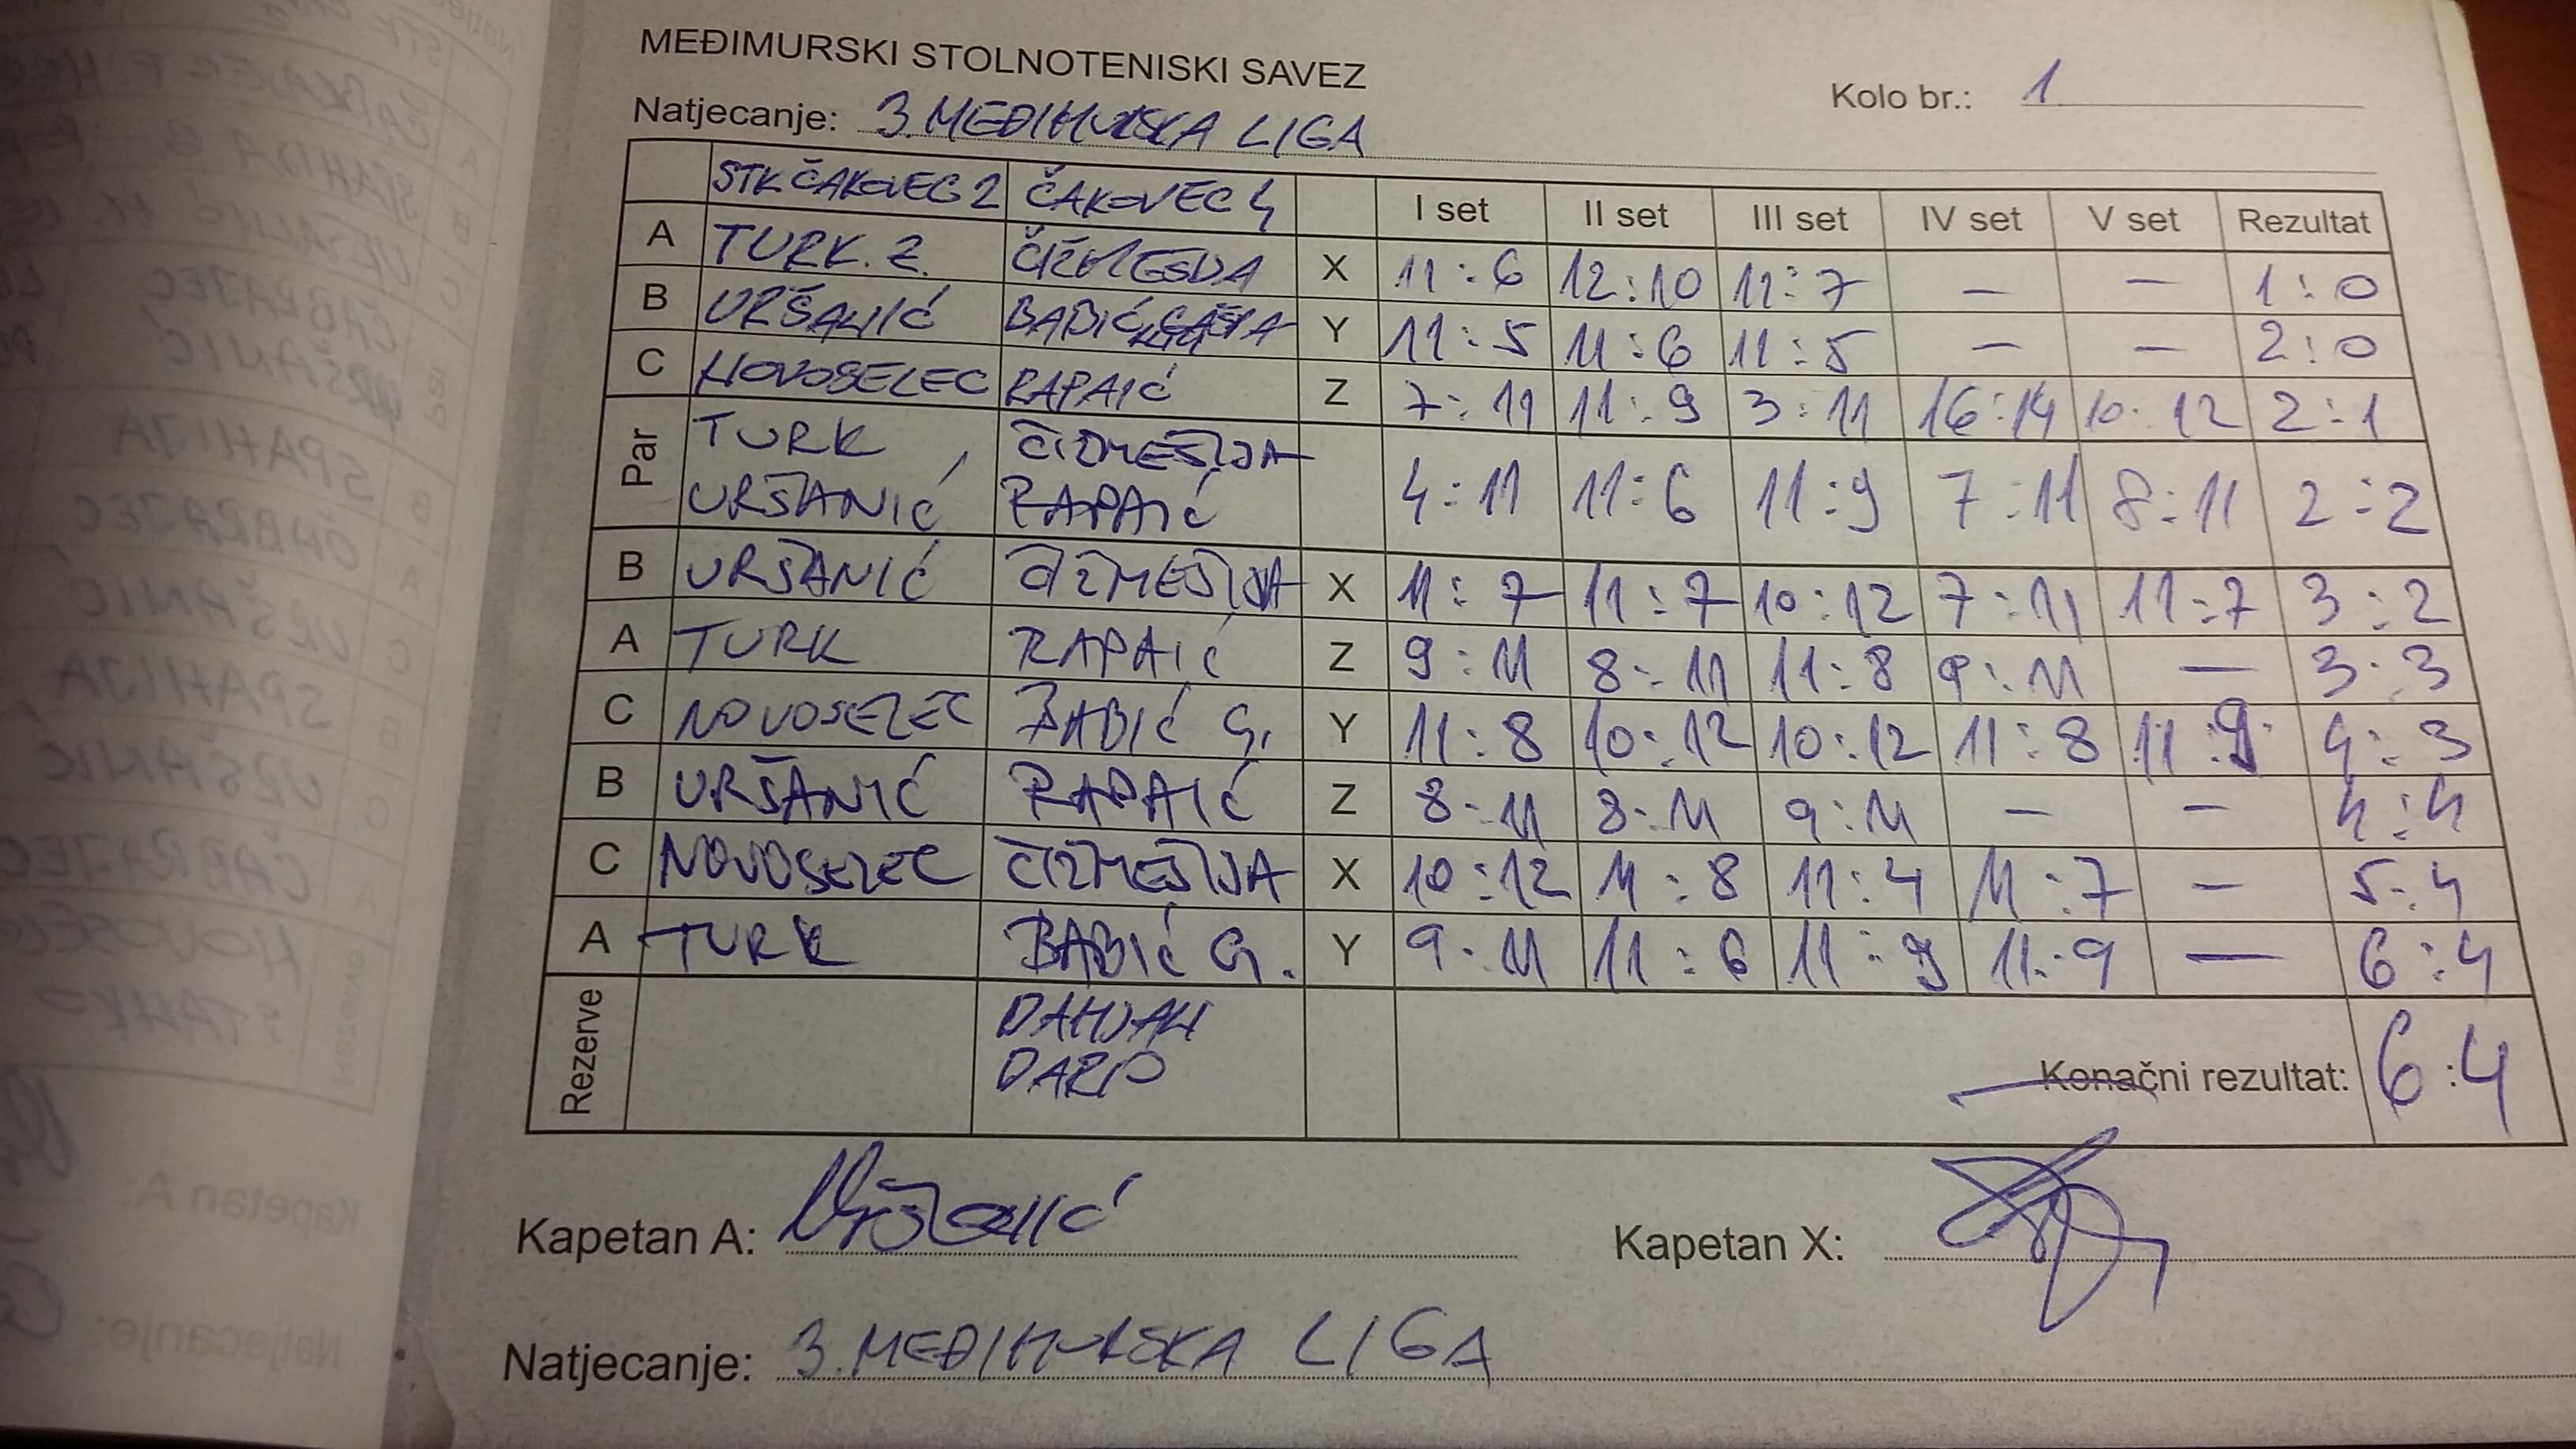 MEĐIMURSKI STOLNOTENISKI SAVEZ
Kolo br.: 1
Natjecanje: 3. MEĐIMURSKA LIGA
STK ČAKOVEC 2 ČAKOVEC 4 I set II set III set IV set V set Rezultat
A TURK. Z. ČIŽMEŠIJA X 11:6 12:10 11:7 – – 1:0
B URŠANIĆ BABIĆ Y 11:5 11:6 11:5 – – 2:0
C NOVOSELEC RAPAIĆ Z 7:11 11:9 3:11 16:14 10:12 2:1
Par TURK, ČIŽMEŠIJA
URŠANIĆ RAPAIĆ 4:11 11:6 11:9 7:11 8:11 2:2
B URŠANIĆ ČIŽMEŠIJA X 11:7 11:7 10:12 7:11 11:7 3:2
A TURK RAPAIĆ Z 9:11 8:11 11:8 9:11 – 3:3
C NOVOSELEC BABIĆ G. Y 11:8 10:12 10:12 11:8 11:9 4:3
B URŠANIĆ RAPAIĆ Z 8:11 8:11 9:11 – – 4:4
C NOVOSELEC ČIŽMEŠIJA X 10:12 11:8 11:4 11:7 – 5:4
A TURK BABIĆ G. Y 9:11 11:6 11:9 11:9 – 6:4
Rezerve DAMJAN
DARIO
Konačni rezultat: 6:4
Kapetan A: Uršanić Kapetan X:
Natjecanje: 3. MEĐIMURSKA LIGA